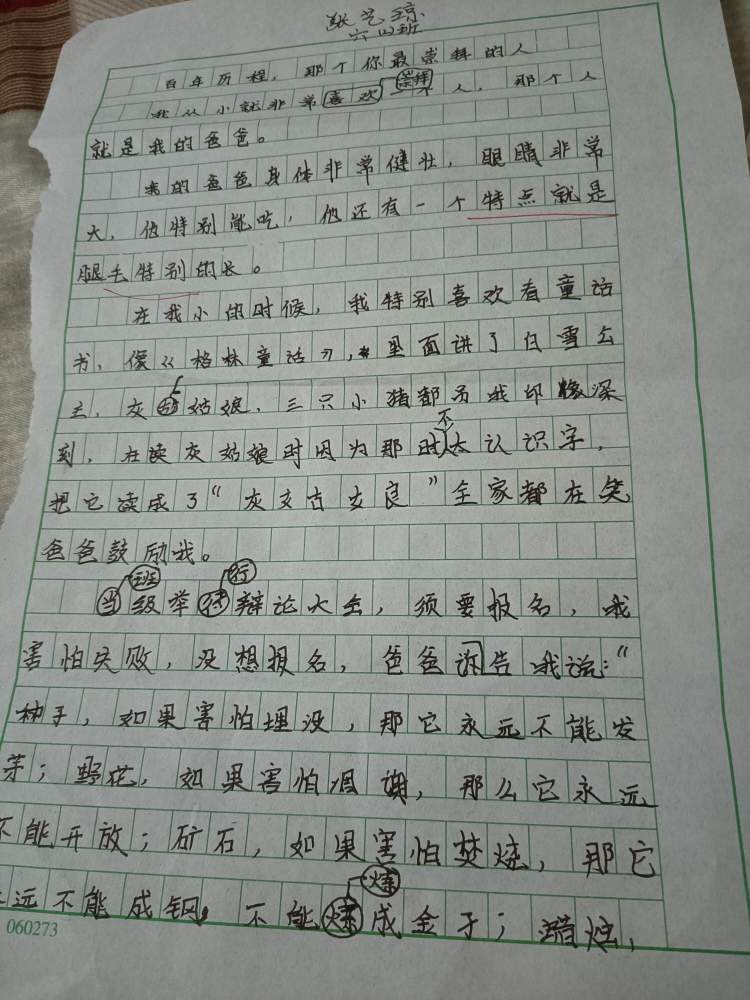 张艺琼
六四班
百年历程，那个你最崇拜的人
我从小就非常喜欢崇拜一个人，那个人
就是我的爸爸。
我的爸爸身体非常健壮，眼睛非常
大，他特别能吃，他还有一个特点就是
腿毛特别的长。
在我小的时候，我特别喜欢看童话
书，像《格林童话》，里面讲了白雪公
主，灰姑娘，三只小猪都另我印象深
刻，在读灰姑娘时因为那时不太认识字，
把它读成了“灰女古女良”全家都在笑
爸爸鼓励我。
当班级举行辩论大会，须要报名，我
害怕失败，没想报名，爸爸诉告我说：“
种子，如果害怕埋没，那它永远不能发
芽；野花，如果害怕凋谢，那么它永远
不能开放；矿石，如果害怕焚烧，那它
远不能成钢，不能炼成金子；蜡烛，
060273